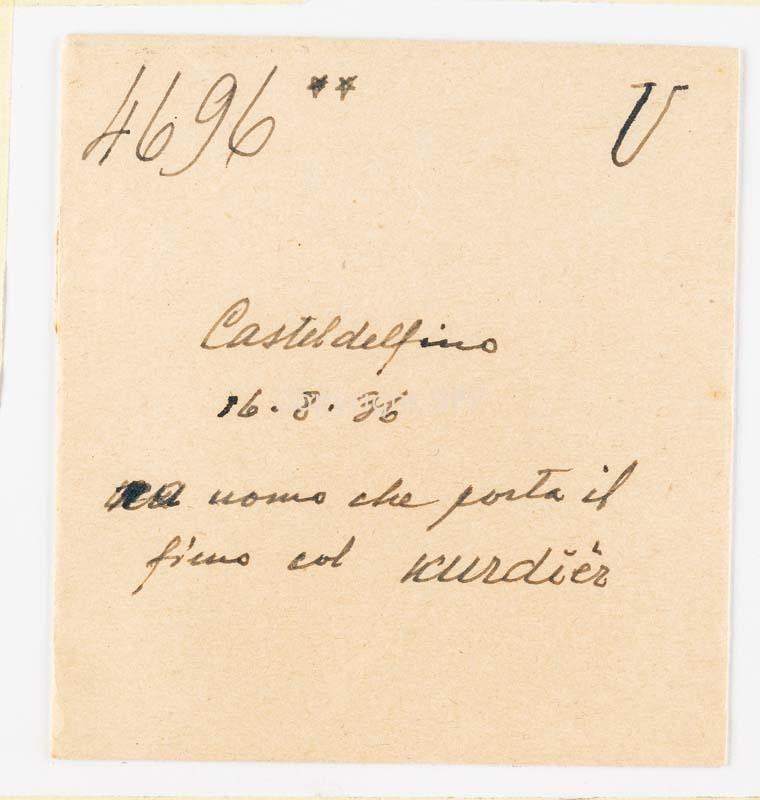 4696 ** U
Casteldelfino
16.8.36
uomo che porta il
fieno col kurdiër